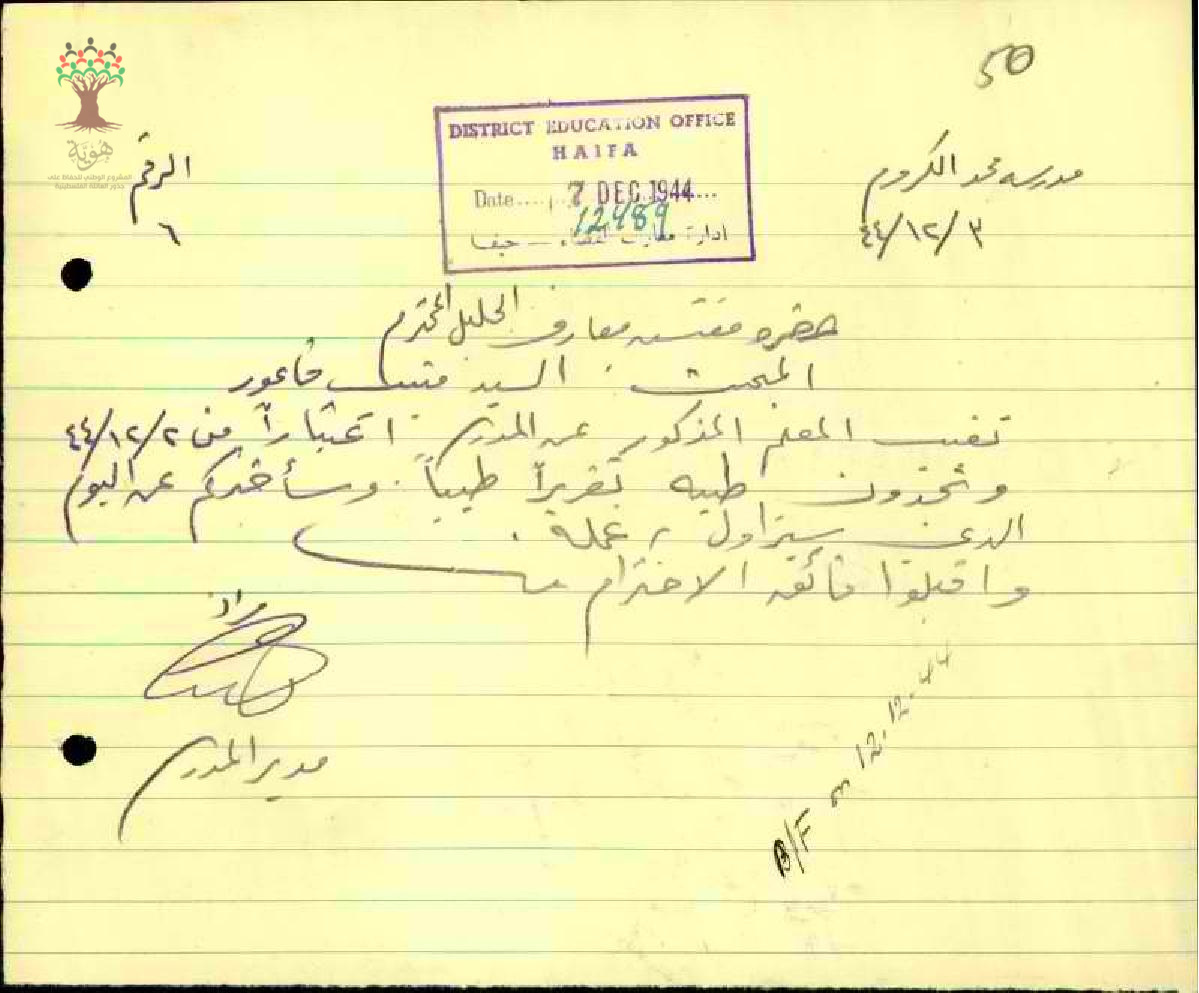 50
هوية
المشروع الوطني للحفاظ على
جذور العائلة الفلسطينية
DISTRICT EDUCATION OFFICE
HAIFA
Date.... 7 DEC 1944....
12489
ادارة معارف القضاء – حيفا
مدرسة مجد الكروم
٤٤/١٢/٣
الرقم
٦
حضرة مفتش معارف الجليل المحترم
المبحث : السيد فاعور
تغيب المعلم المذكور عن المدرسة اعتباراً من ٤٤/١٢/٢
وتجدون طيه تقريراً طبياً. وسأخبركم عن اليوم
الذي سيزاول عمله .
واقبلوا فائق الاحترام
مدير المدرسة
B/F on 12.12.44